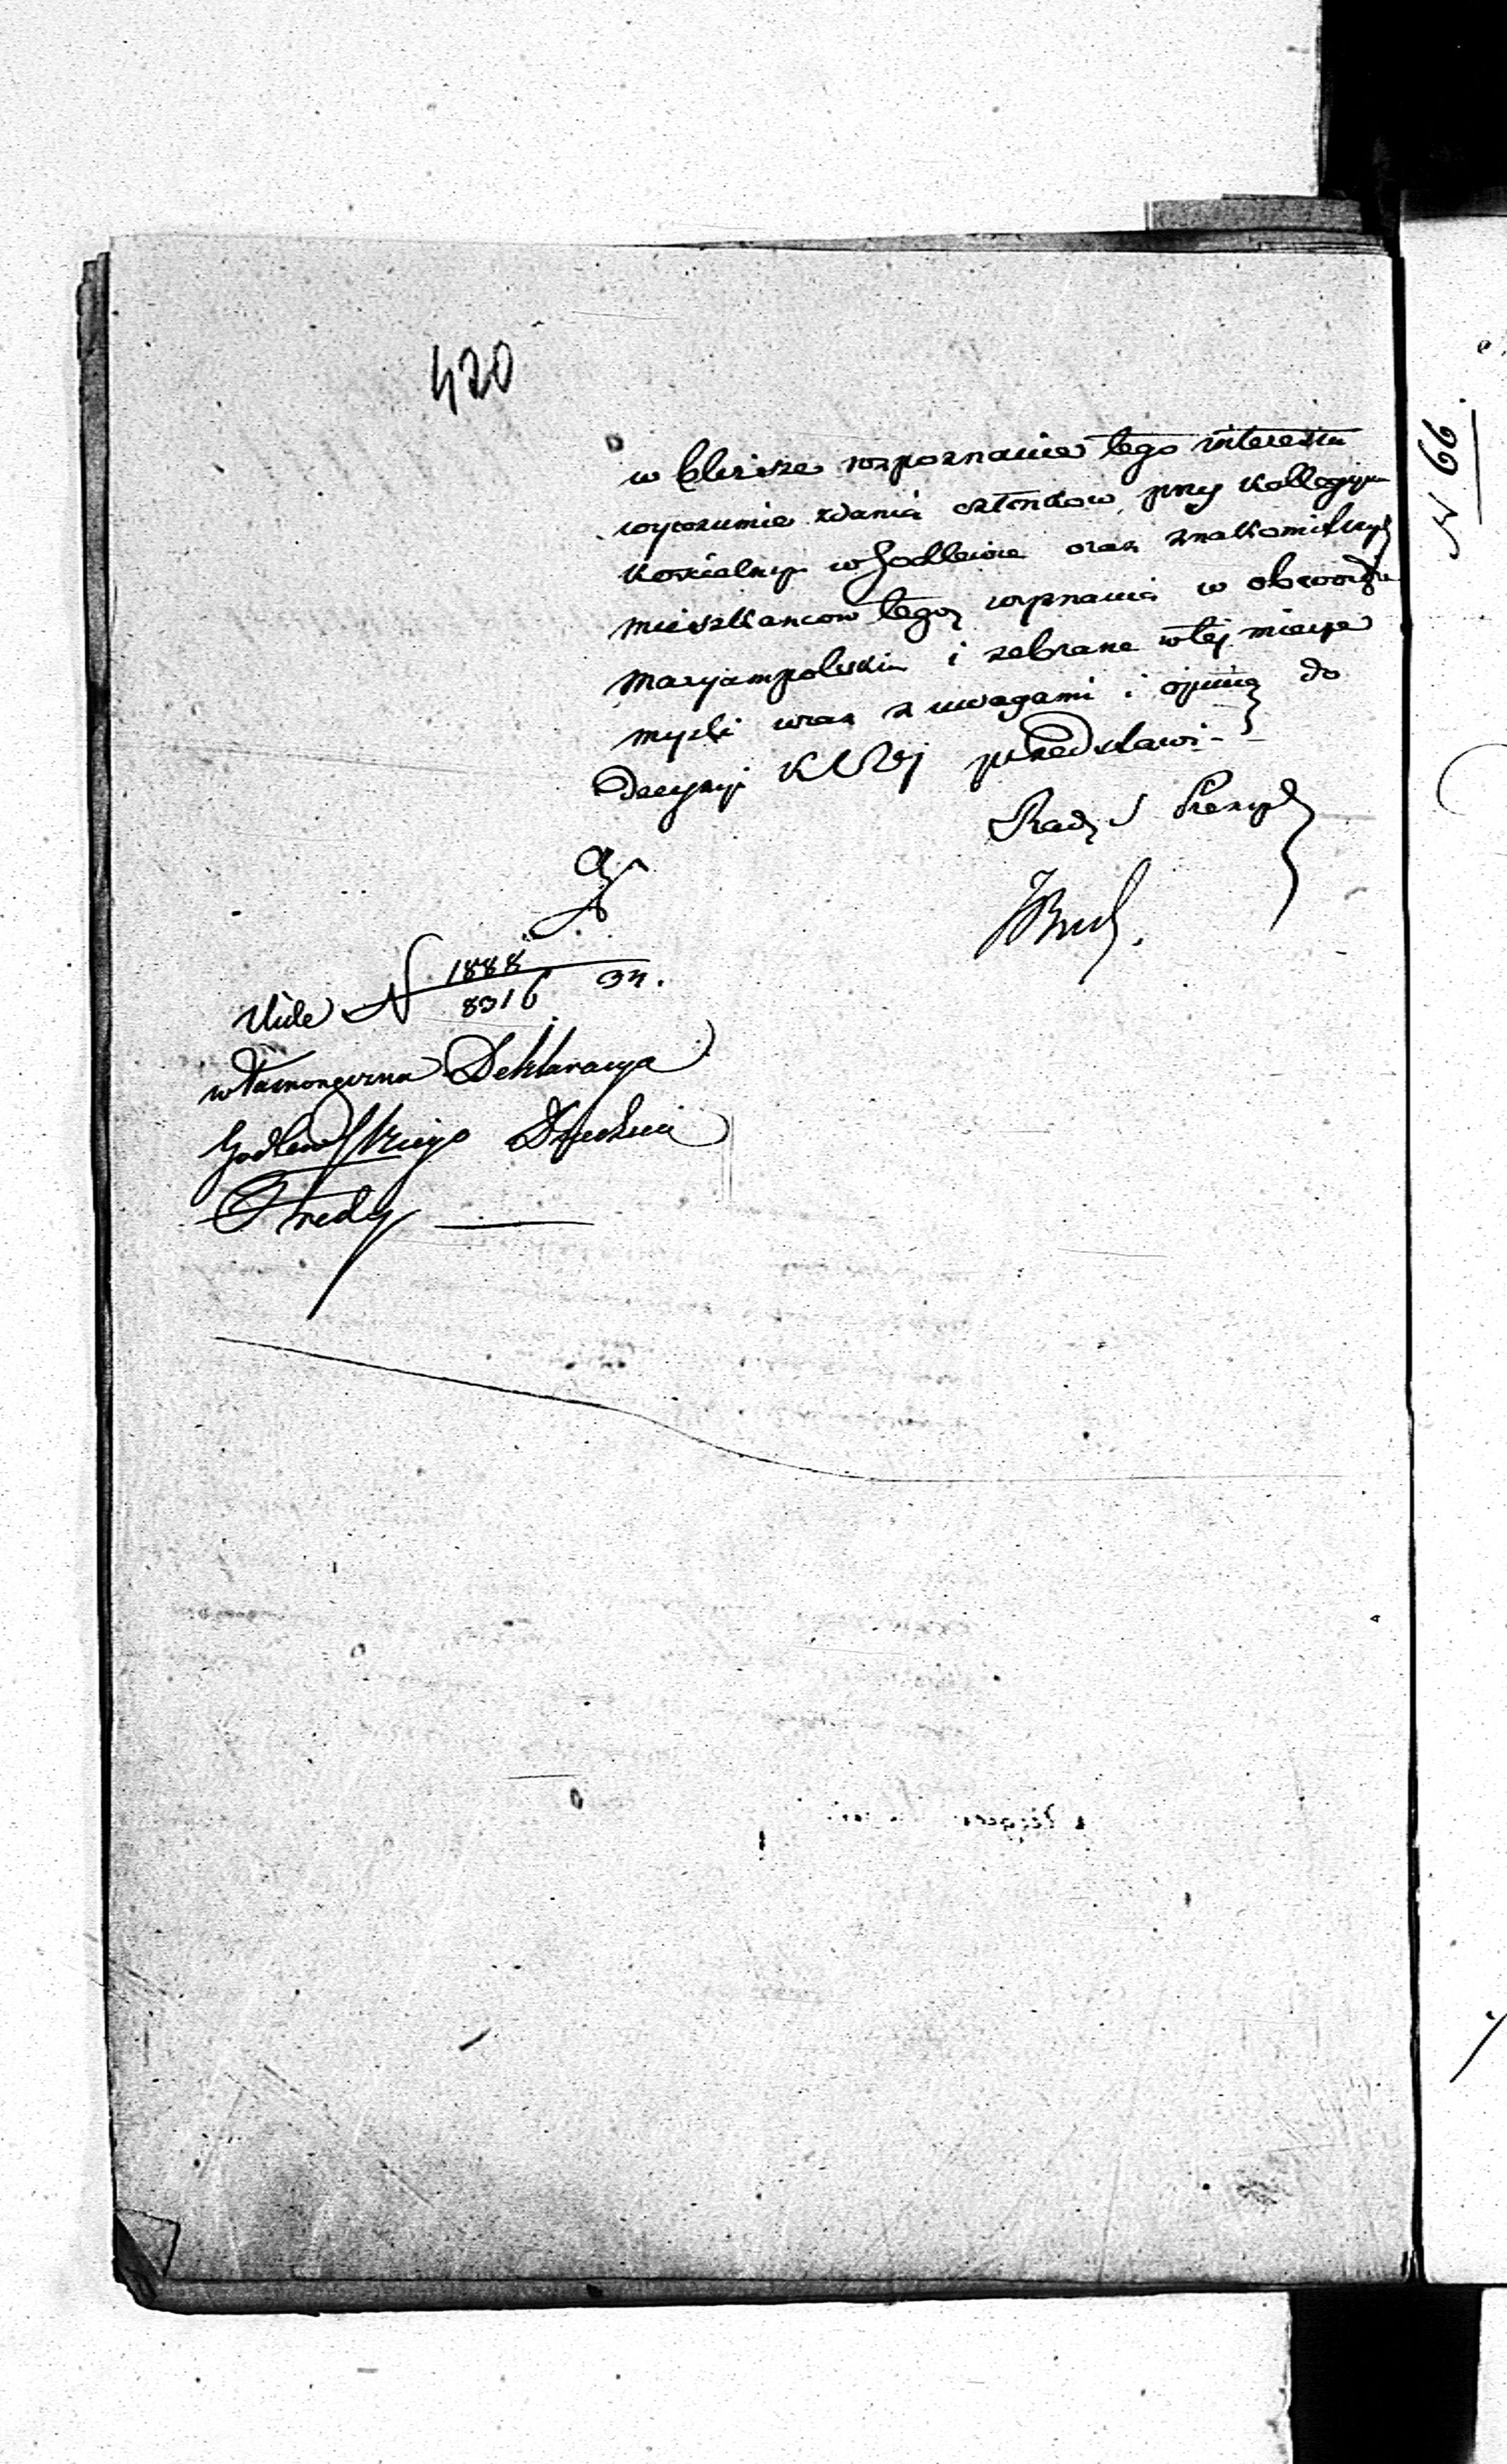 420
w bliższe rozpoznanie tego interessu
wyrozumie zdania członkow przy Kollegijum
Koscielnym w Godlewie oraz znakomitszych
mieszkancow tegoż wyznania w obwodzie
Maryampolskim i zebrane w tej mierze
mysli wraz z uwagami i opinią do
Decyzyi KWRj przedstawi
Radz S Prezyd
Vide N 1888/8316 34.
własnoręczna Deklaracya
Godlewskiego
N 66